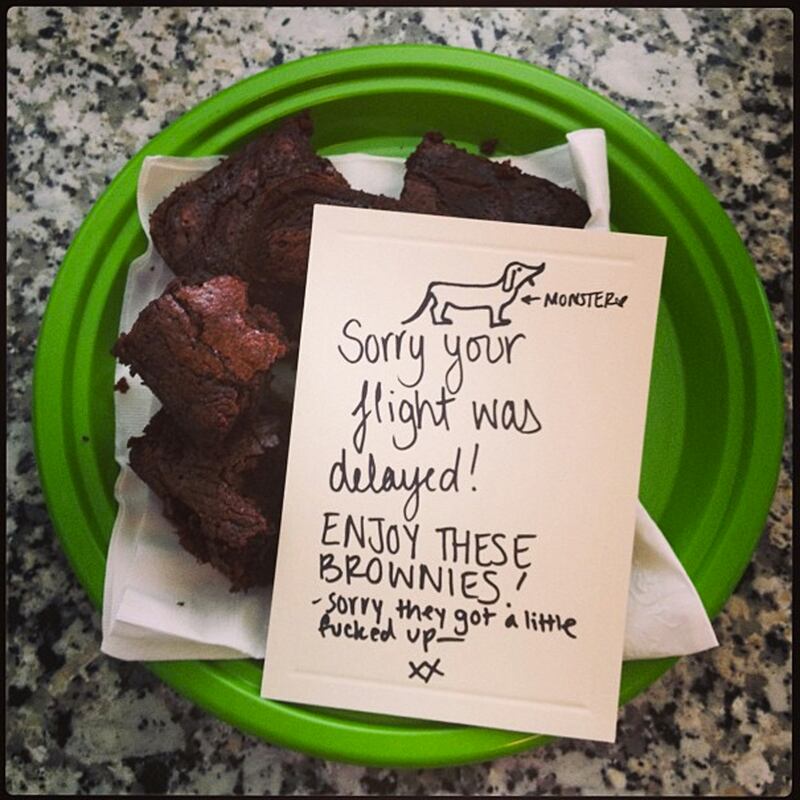 MONSTER
Sorry your
flight was
delayed!
ENJOY THESE
BROWNIES!
- sorry they got a little
fucked up—
XX